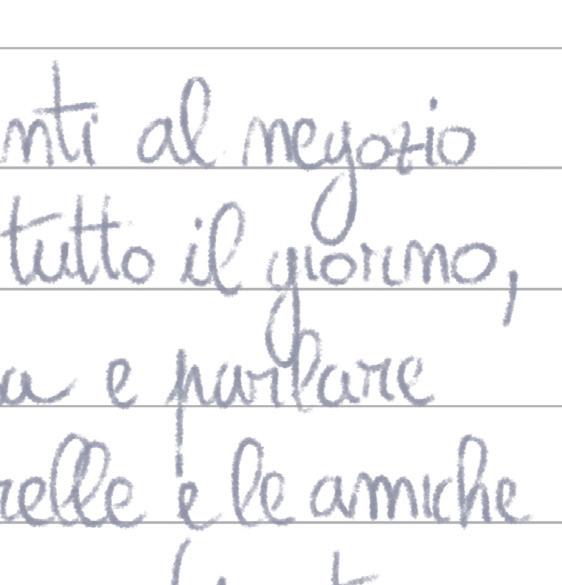 nti al negozio
tutto il giorno,
a e parlare
relle e le amiche